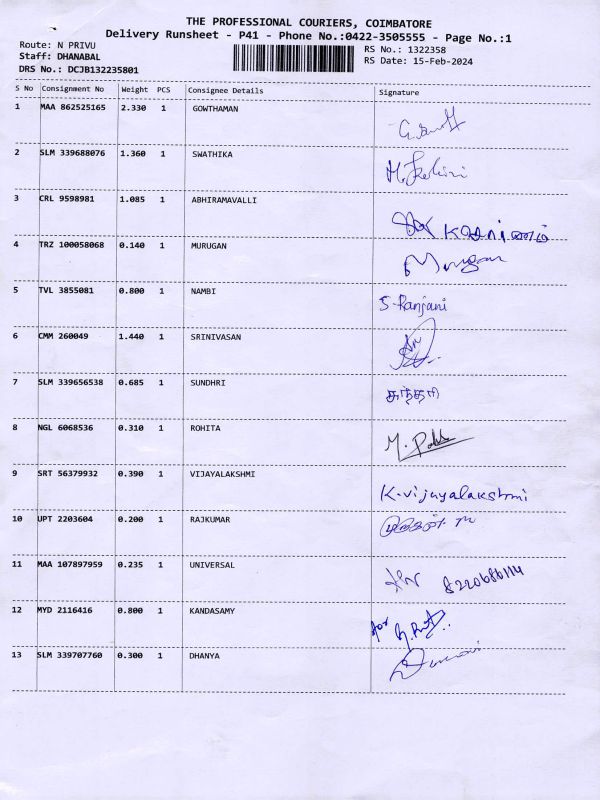 THE PROFESSIONAL COURIERS, COIMBATORE
Delivery Runsheet - P41 - Phone No.:0422-3505555 - Page No.:1
Route: N PRIVU RS No.: 1322358
Staff: DHANABAL RS Date: 15-Feb-2024
DRS No.: DCJB132235801
S No Consignment No Weight PCS Consignee Details Signature
1 MAA 862525165 2.330 1 GOWTHAMAN
2 SLM 339688076 1.360 1 SWATHIKA
3 CRL 9598981 1.085 1 ABHIRAMAVALLI
4 TRZ 100058068 0.140 1 MURUGAN Murugan
5 TVL 3855081 0.800 1 NAMBI S-Ranjani
6 CMM 260049 1.440 1 SRINIVASAN
7 SLM 339656538 0.685 1 SUNDHRI சுந்தரி
8 NGL 6068536 0.310 1 ROHITA
9 SRT 56379932 0.390 1 VIJAYALAKSHMI K-vijayalakshmi
10 UPT 2203604 0.200 1 RAJKUMAR
11 MAA 107897959 0.235 1 UNIVERSAL
12 MYD 2116416 0.800 1 KANDASAMY for
13 SLM 339707760 0.300 1 DHANYA